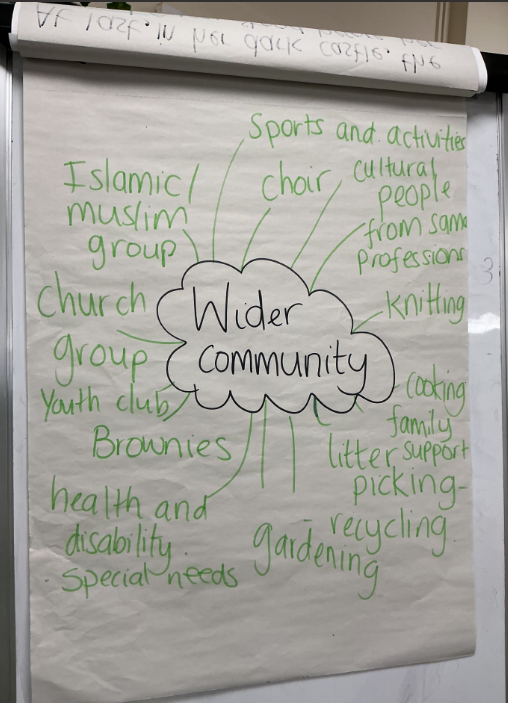 At last, in her dark castle, the
Sports and activities
Islamic/
muslim
group
choir
cultural
people
from same
professions
church
group
Wider
community
knitting
Youth club
cooking
family
support
Brownies
litter
picking-
- recycling
health and
disability.
Special needs
gardening
3